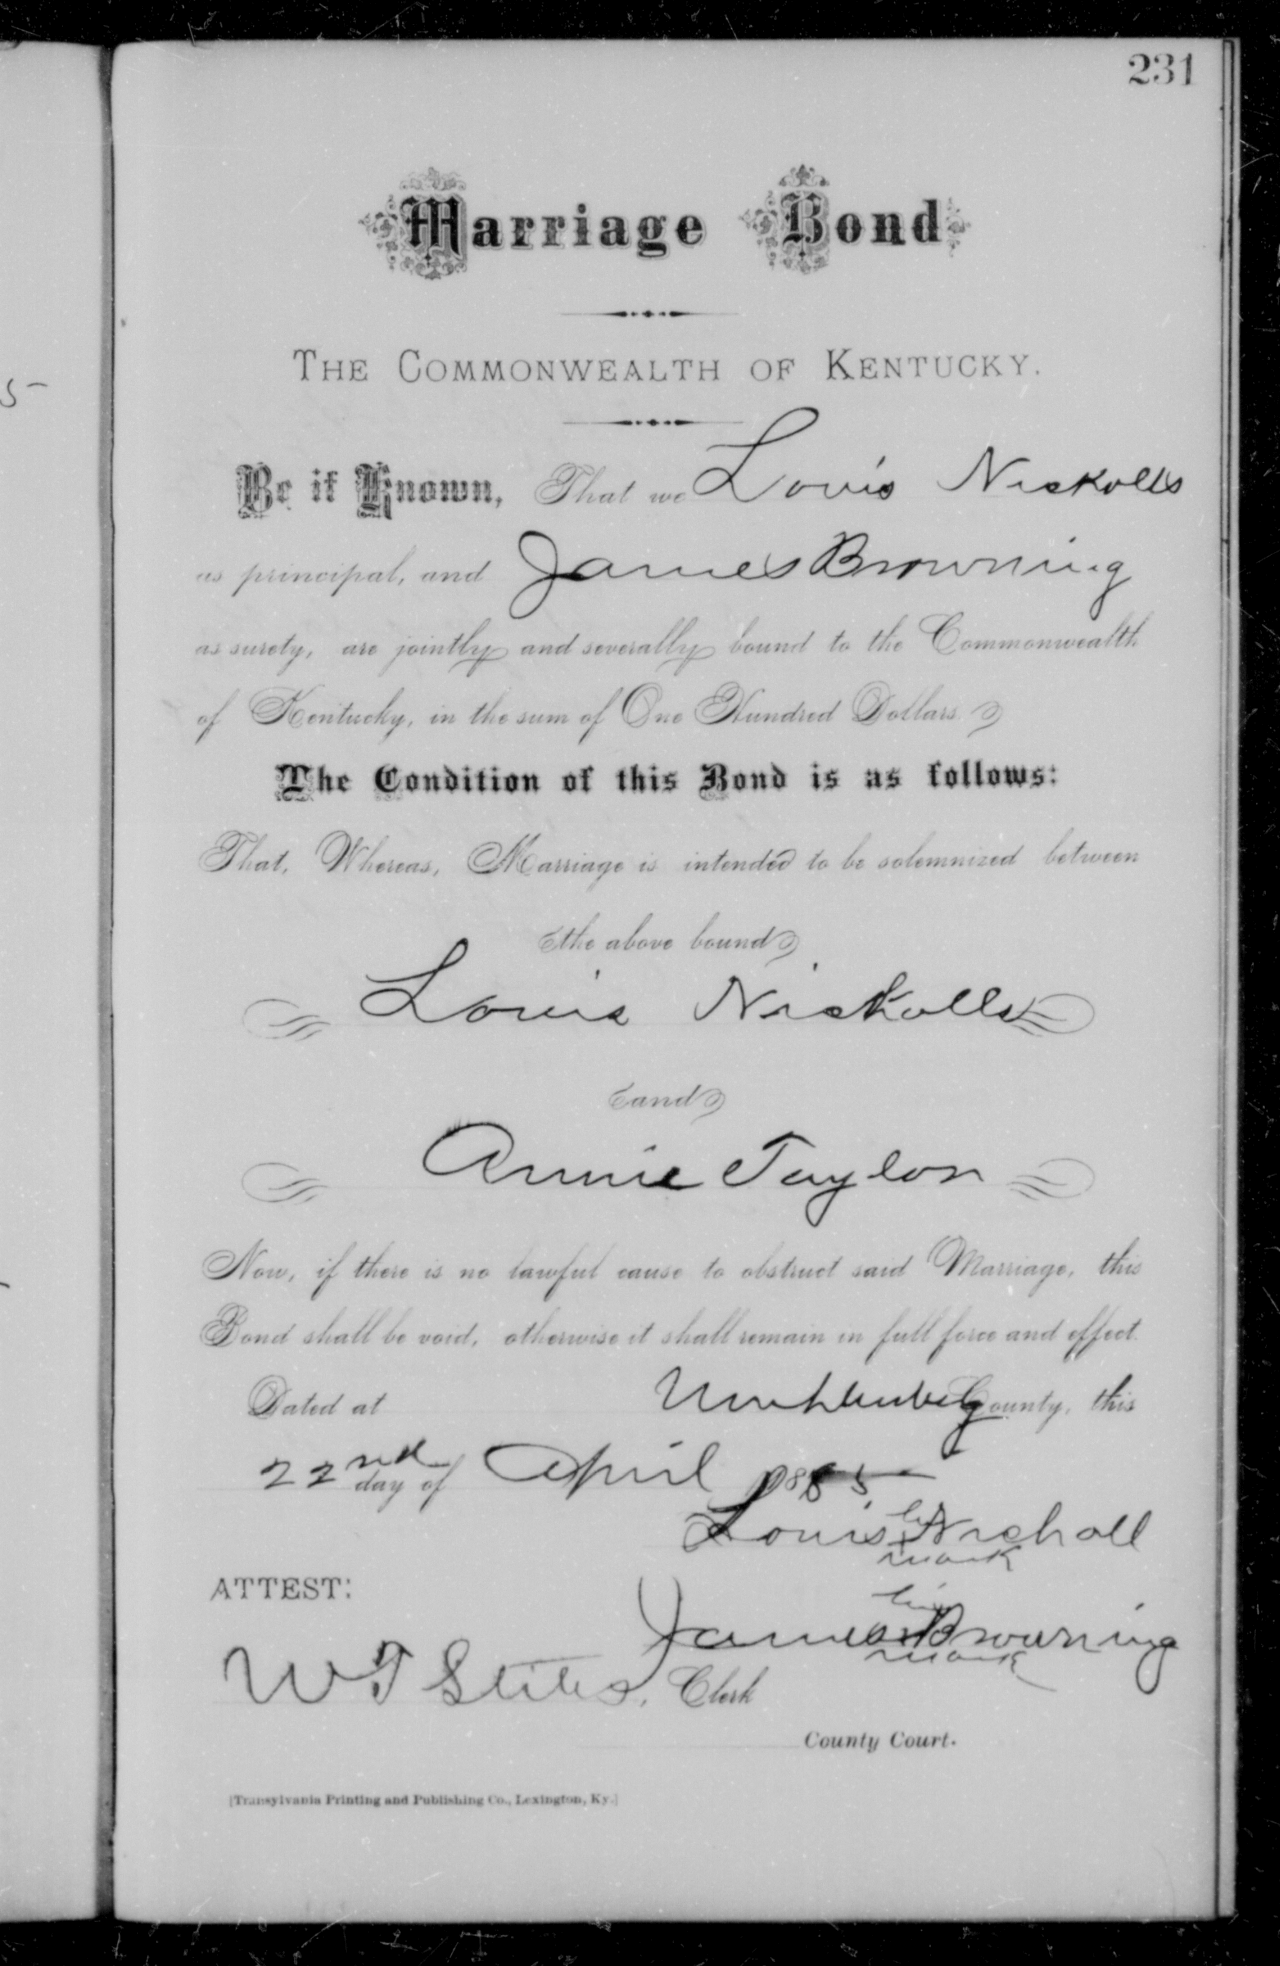 231
Marriage Bond
THE COMMONWEALTH OF KENTUCKY.
5
Be it Known, That we Louis Nickolls
as principal, and James Browning
as surety, are jointly and severally bound to the Commonwealth
of Kentucky, in the sum of One Hundred Dollars.
The Condition of this Bond is as follows:
That, Whereas, Marriage is intended to be solemnized between
the above bound
Louis Nickolls
and
Annie Taylor
Now, if there is no lawful cause to obstruct said Marriage, this
Bond shall be void, otherwise it shall remain in full force and effect.
Dated at Muhlenberg County, this
22nd day of April 1885
his
Louis Nicholl
mark
ATTEST:
his
James Browning
mark
W T Stiles, Clerk
County Court.
[Transylvania Printing and Publishing Co., Lexington, Ky.]